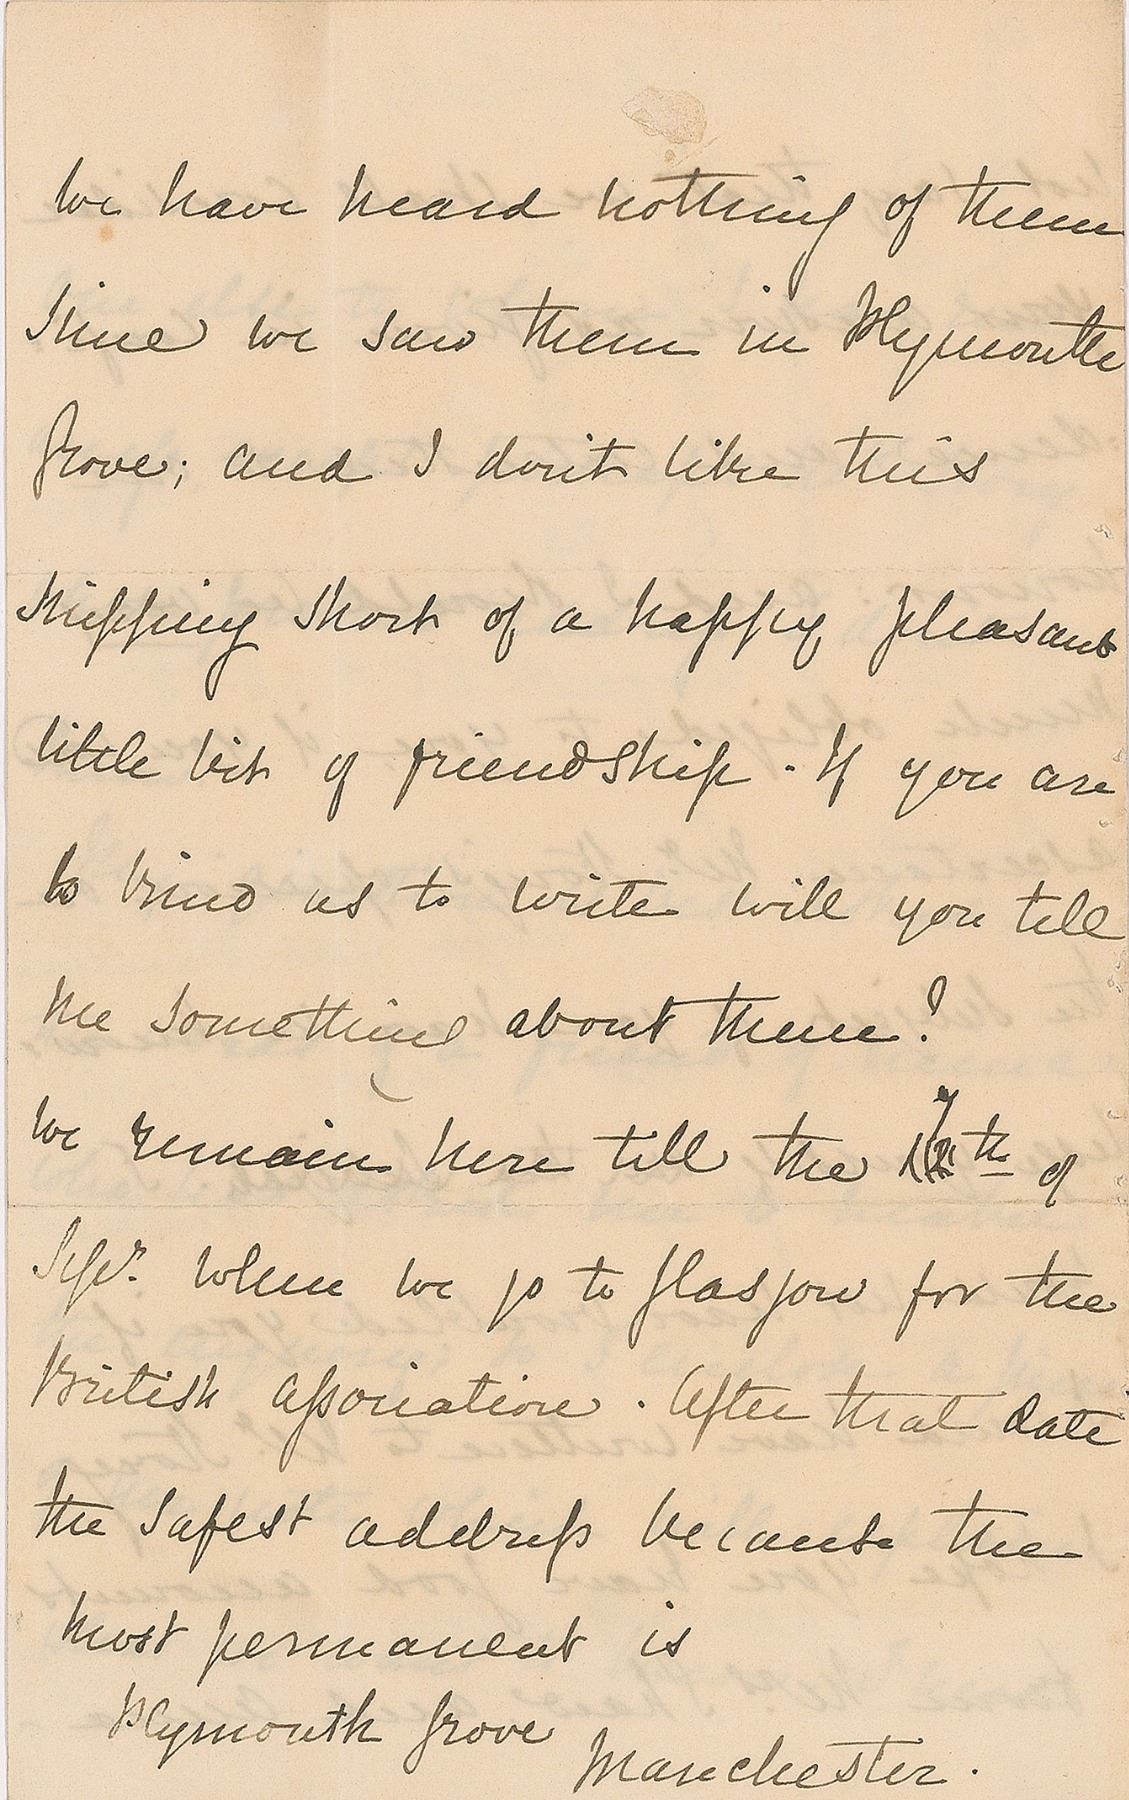 We have heard nothing of them
since we saw them in Plymouth
Grove; and I don't like this
stopping short of a happy pleasant
little bit of friendship. If you are
so kind as to write will you tell
me something about them?
We remain here till the th of
Sepr. when we go to Glasgow for the
British Association. After that date
the safest address because the
most permanent is
Plymouth Grove
Manchester.